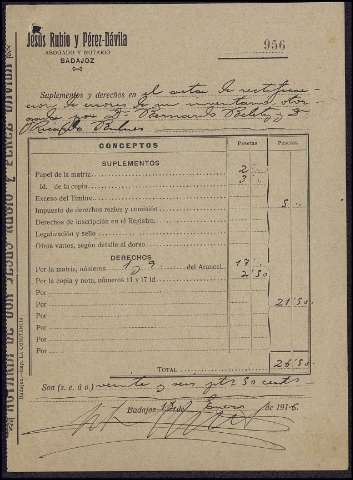 Jesús Rubio y Pérez-Dávila
ABOGADO Y NOTARIO
BADAJOZ
956
Suplementos y derechos en el acta de rectifica-
cion de errores de un inventario otor-
gada por D. Bernardo y D
Ricardo
CONCEPTOS Pesetas Pesetas
SUPLEMENTOS
Papel de la matriz. 2
Id. de la copia. 3
Exceso del Timbre.
Impuesto de derechos reales y comisión. 5
Derechos de inscripción en el Registro.
Legalización y sello
Otros varios, según detalle al dorso
DERECHOS
Por la matriz, números 1 y 9 del Arancel. 17
Por la copia y nota, números 11 y 17 id. 2 50
Por
Por 21 50
Por
Por
Por
TOTAL 26 50
Son (s. e. ú o.) veinte y seis pts 50 cents
Badajoz de Enero de 1916
NOTARÍA DE DON JESUS RUBIO Y PEREZ DAVILA
Badajoz.-Imp. LA CONSTANCIA